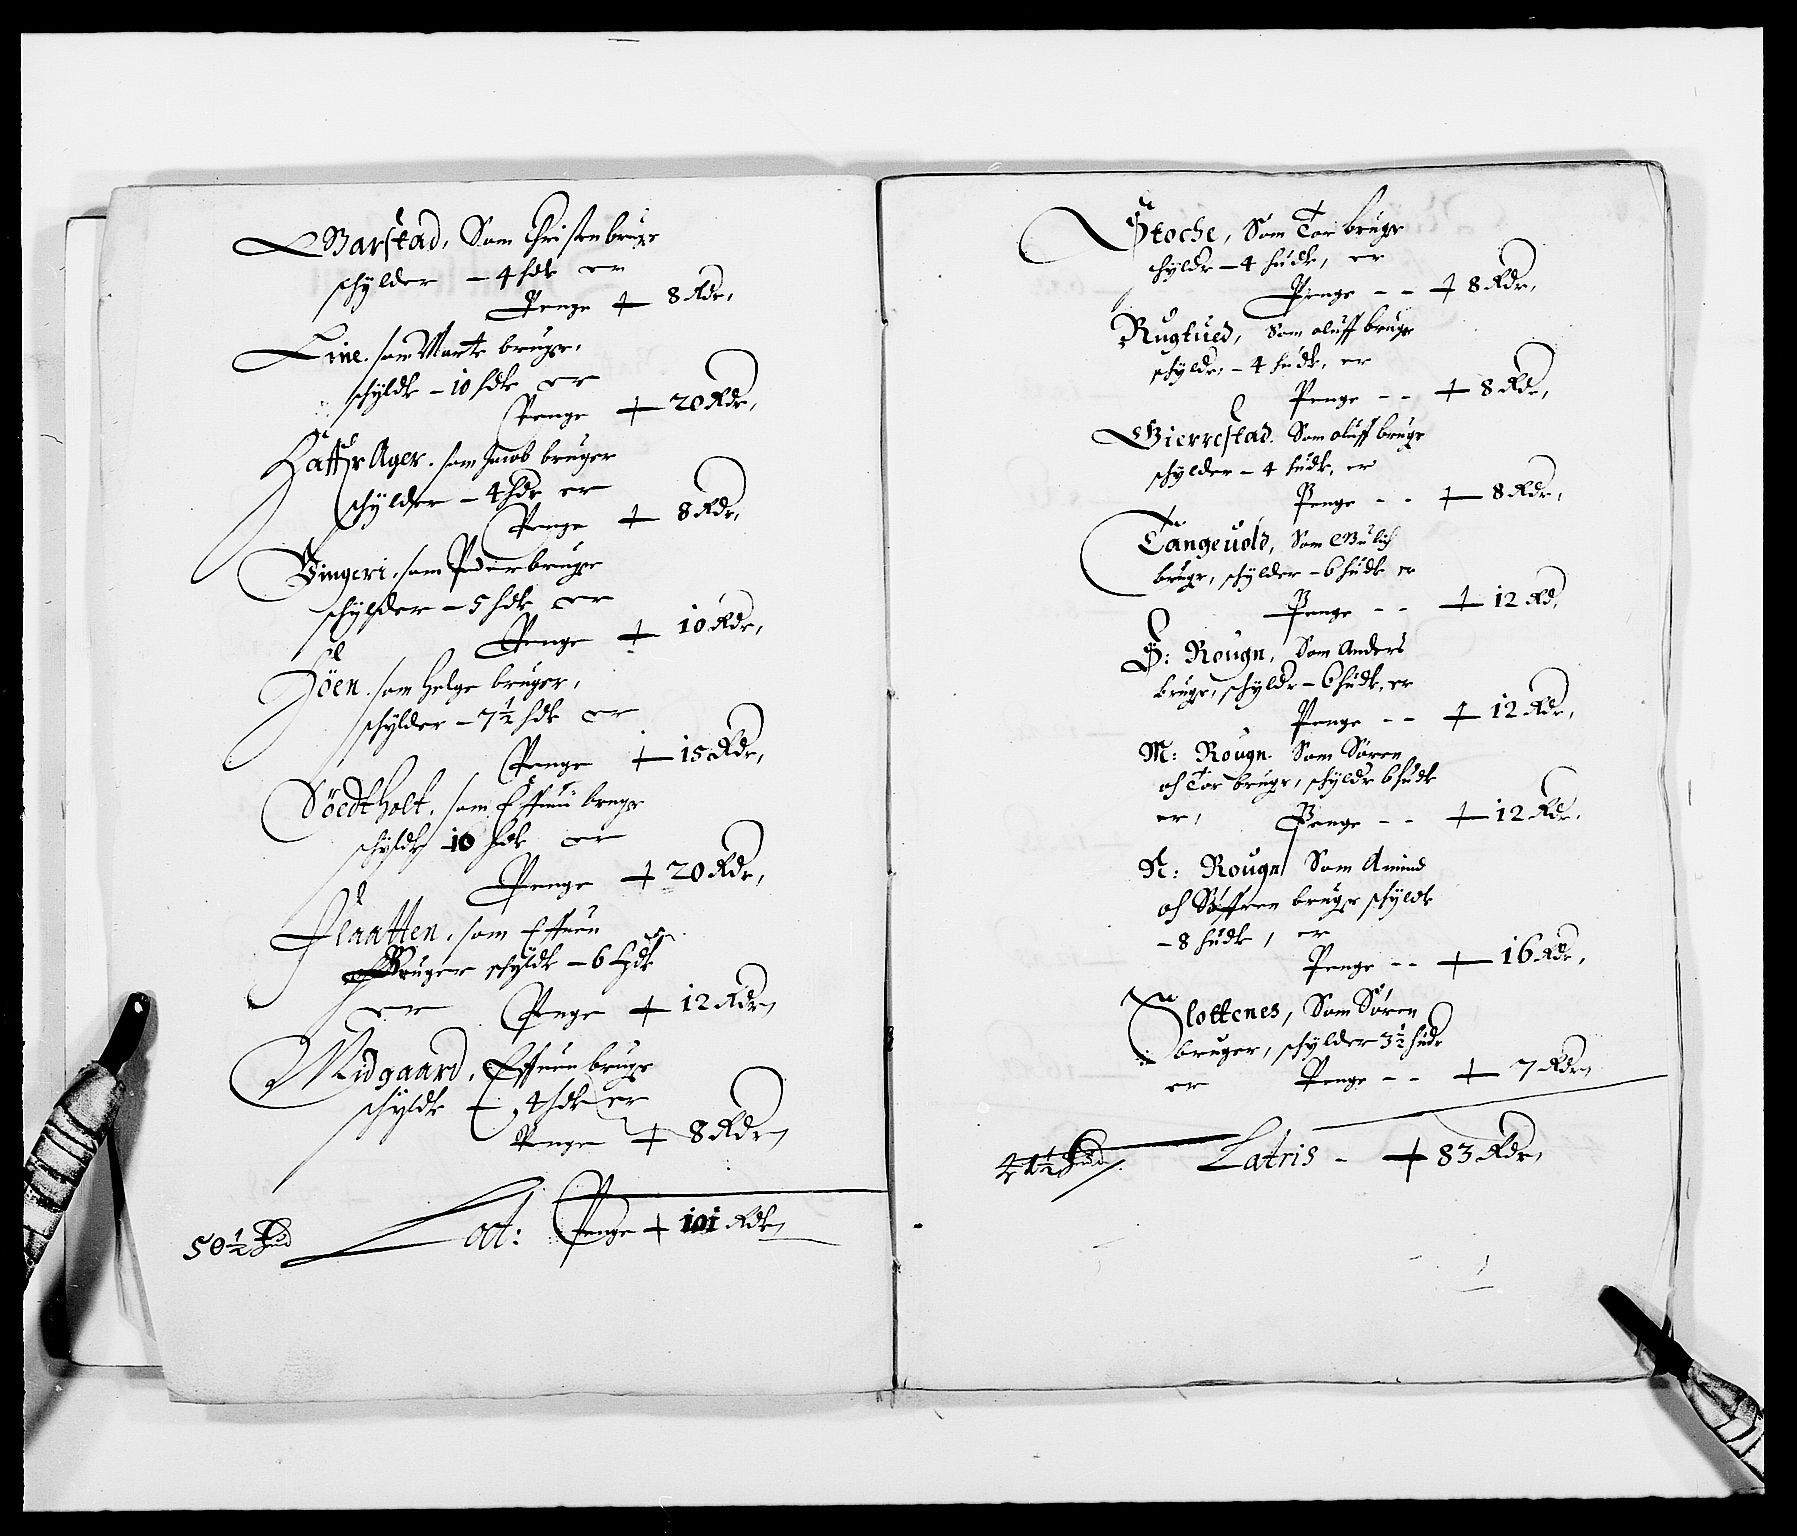 Barstad, Som Christen bruger
schylder – 4 hdr er
Penge + 8 Rdr,
Line. som Marte bruger,
schylder – 10 hdr er
Penge + 20 Rdr,
Haffr Ager. som Jacob bruger
schylder – 4 hdr er
Penge + 8 Rdr,
Vingeri. som Peder bruger
schylder – 5 hdr er
Penge + 10 Rdr,
Höen. som Helge bruger,
schylder – 7½ hdr er
Penge + 15 Rdr,
Södtholt. som Effuen bruger
schylder 10 hdr er
Penge + 20 Rdr,
Flaatten. som Effuen
Bruger schylder – 6 hdr
er Penge + 12 Rdr,
Midgaard, Effuen bruger
schylder – 4 hdr er
Penge + 8 Rdr,
50½ hud Lat: Penge + 101 Rdr,
Stoche, Som Tor bruger
schylder – 4 huder, er
Penge – – + 8 Rdr,
Rugtued, Som oluff bruger
schylder, – 4 huder, er
Penge – – + 8 Rdr,
Bierrestad. Som oluff bruger
schylder – 4 huder, er
Penge – – + 8 Rdr,
Tangeuold, Som
bruger, schylder – 6 huder er
Penge – – + 12 Rd,
S: Rougn, Som Anders
bruger, schylder – 6 huder, er
Penge – – + 12 Rdr,
M: Rougn. Som Sören
och Tor bruger, schylder 6 huder
er, Penge – – + 12 Rdr,
N: Rougn Som Amund
och Söffren bruger schylder
– 8 huder, er
Penge – – + 16 Rdr,
Slottenes, Som Sören
bruger, schylder 3½ hudr
er Penge – – + 7 Rdr,
41½ hud Latris – + 83 Rdr,